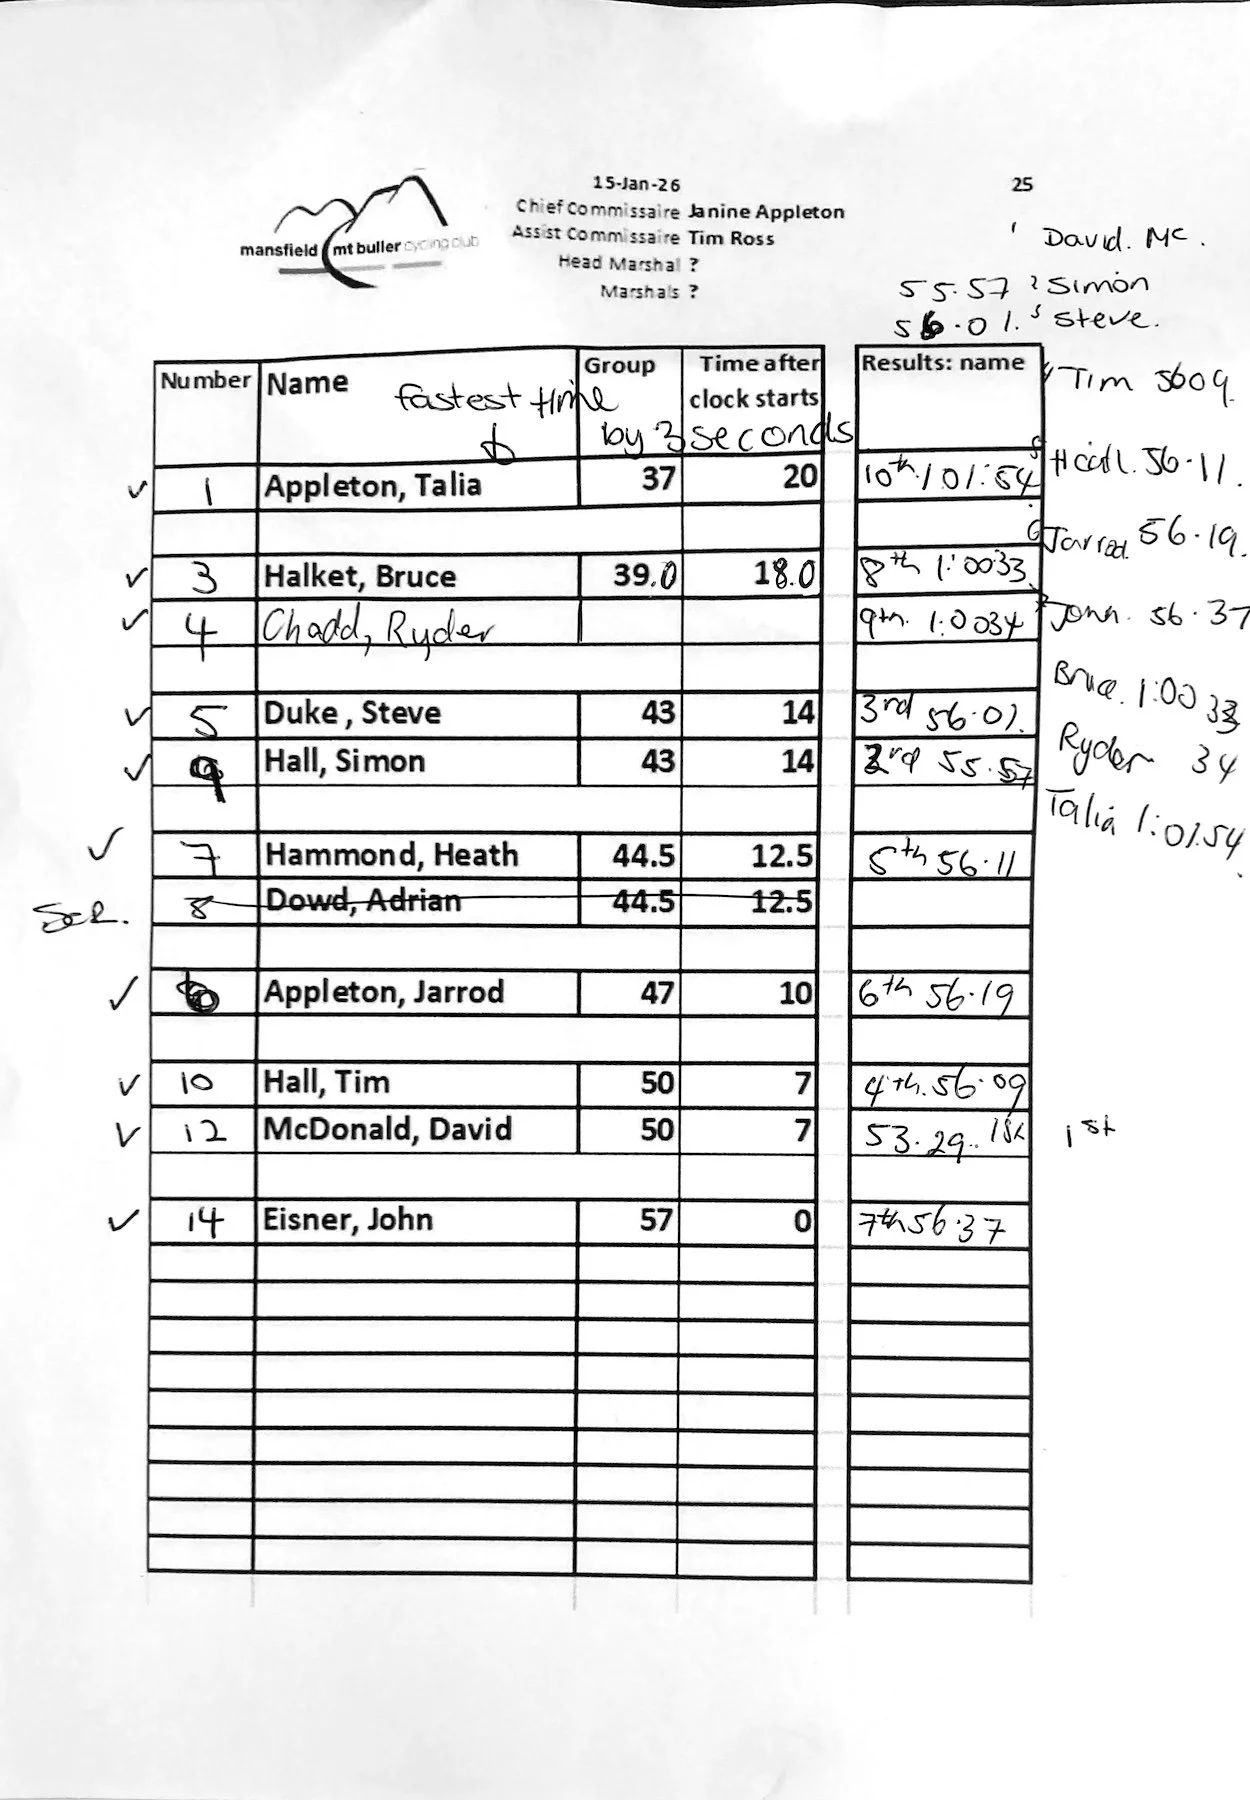 15-Jan-26 25
Chief Commissaire Janine Appleton
Assist Commissaire Tim Ross
Head Marshal ?
Marshals ?
mansfield mt buller cycling club
1 David. Mc.
55.57 2 Simon
56.01. 3 Steve.
Number Name Group Time after clock starts Results: name
fastest time by 3 seconds
4 Tim 5609.
5 Heath. 56.11.
6 Jarrod. 56.19.
7 John. 56.37
Bruce. 1:00 33
Ryder 34
Talia 1:01.54
✓ 1 Appleton, Talia 37 20 10th 1 01:54
✓ 3 Halket, Bruce 39.0 18.0 8th 1:0033
✓ 4 Chadd, Ryder 9th. 1:0034
✓ 5 Duke, Steve 43 14 3rd 56.01.
✓ 9 Hall, Simon 43 14 2rd 55.57
✓ 7 Hammond, Heath 44.5 12.5 5th 56.11
Scr. 8 Dowd, Adrian 44.5 12.5
✓ 6 Appleton, Jarrod 47 10 6th 56.19
✓ 10 Hall, Tim 50 7 4th. 56.09
✓ 12 McDonald, David 50 7 53.29.. 1st 1st
✓ 14 Eisner, John 57 0 7th 56.37